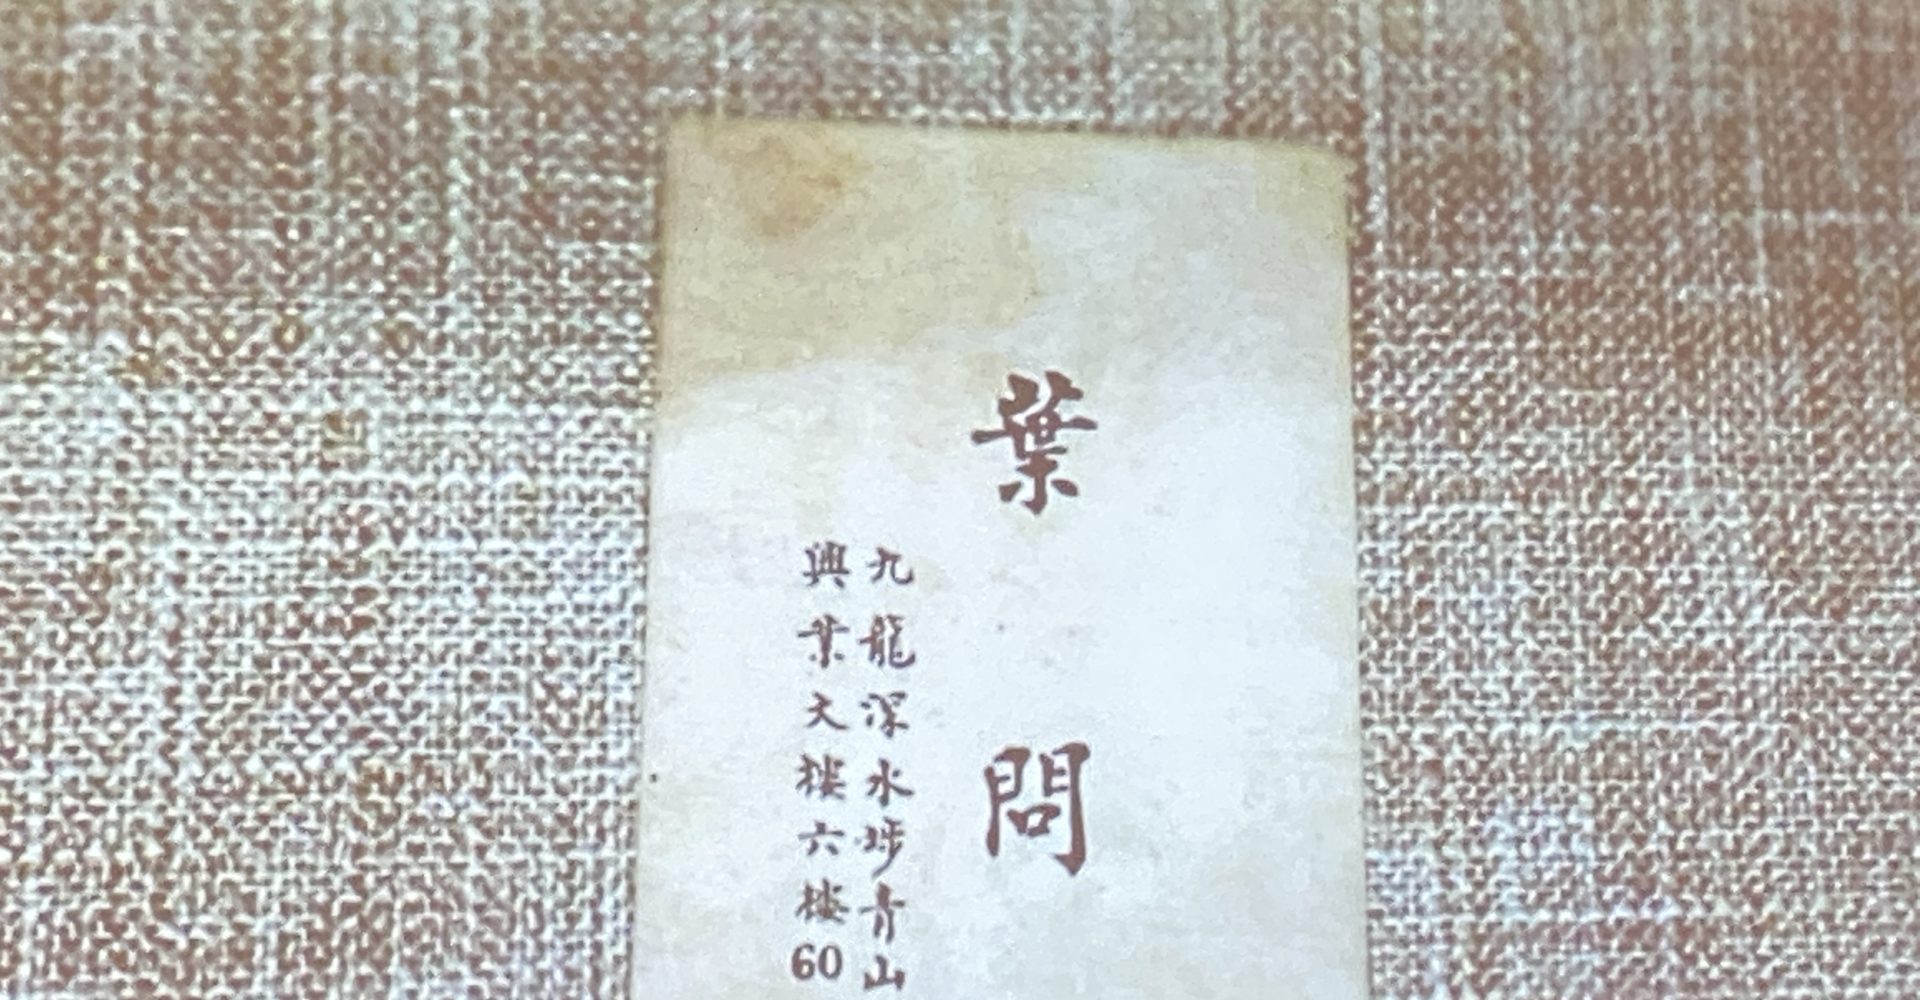 葉問
九龍深水埗青山
興業大樓六樓60